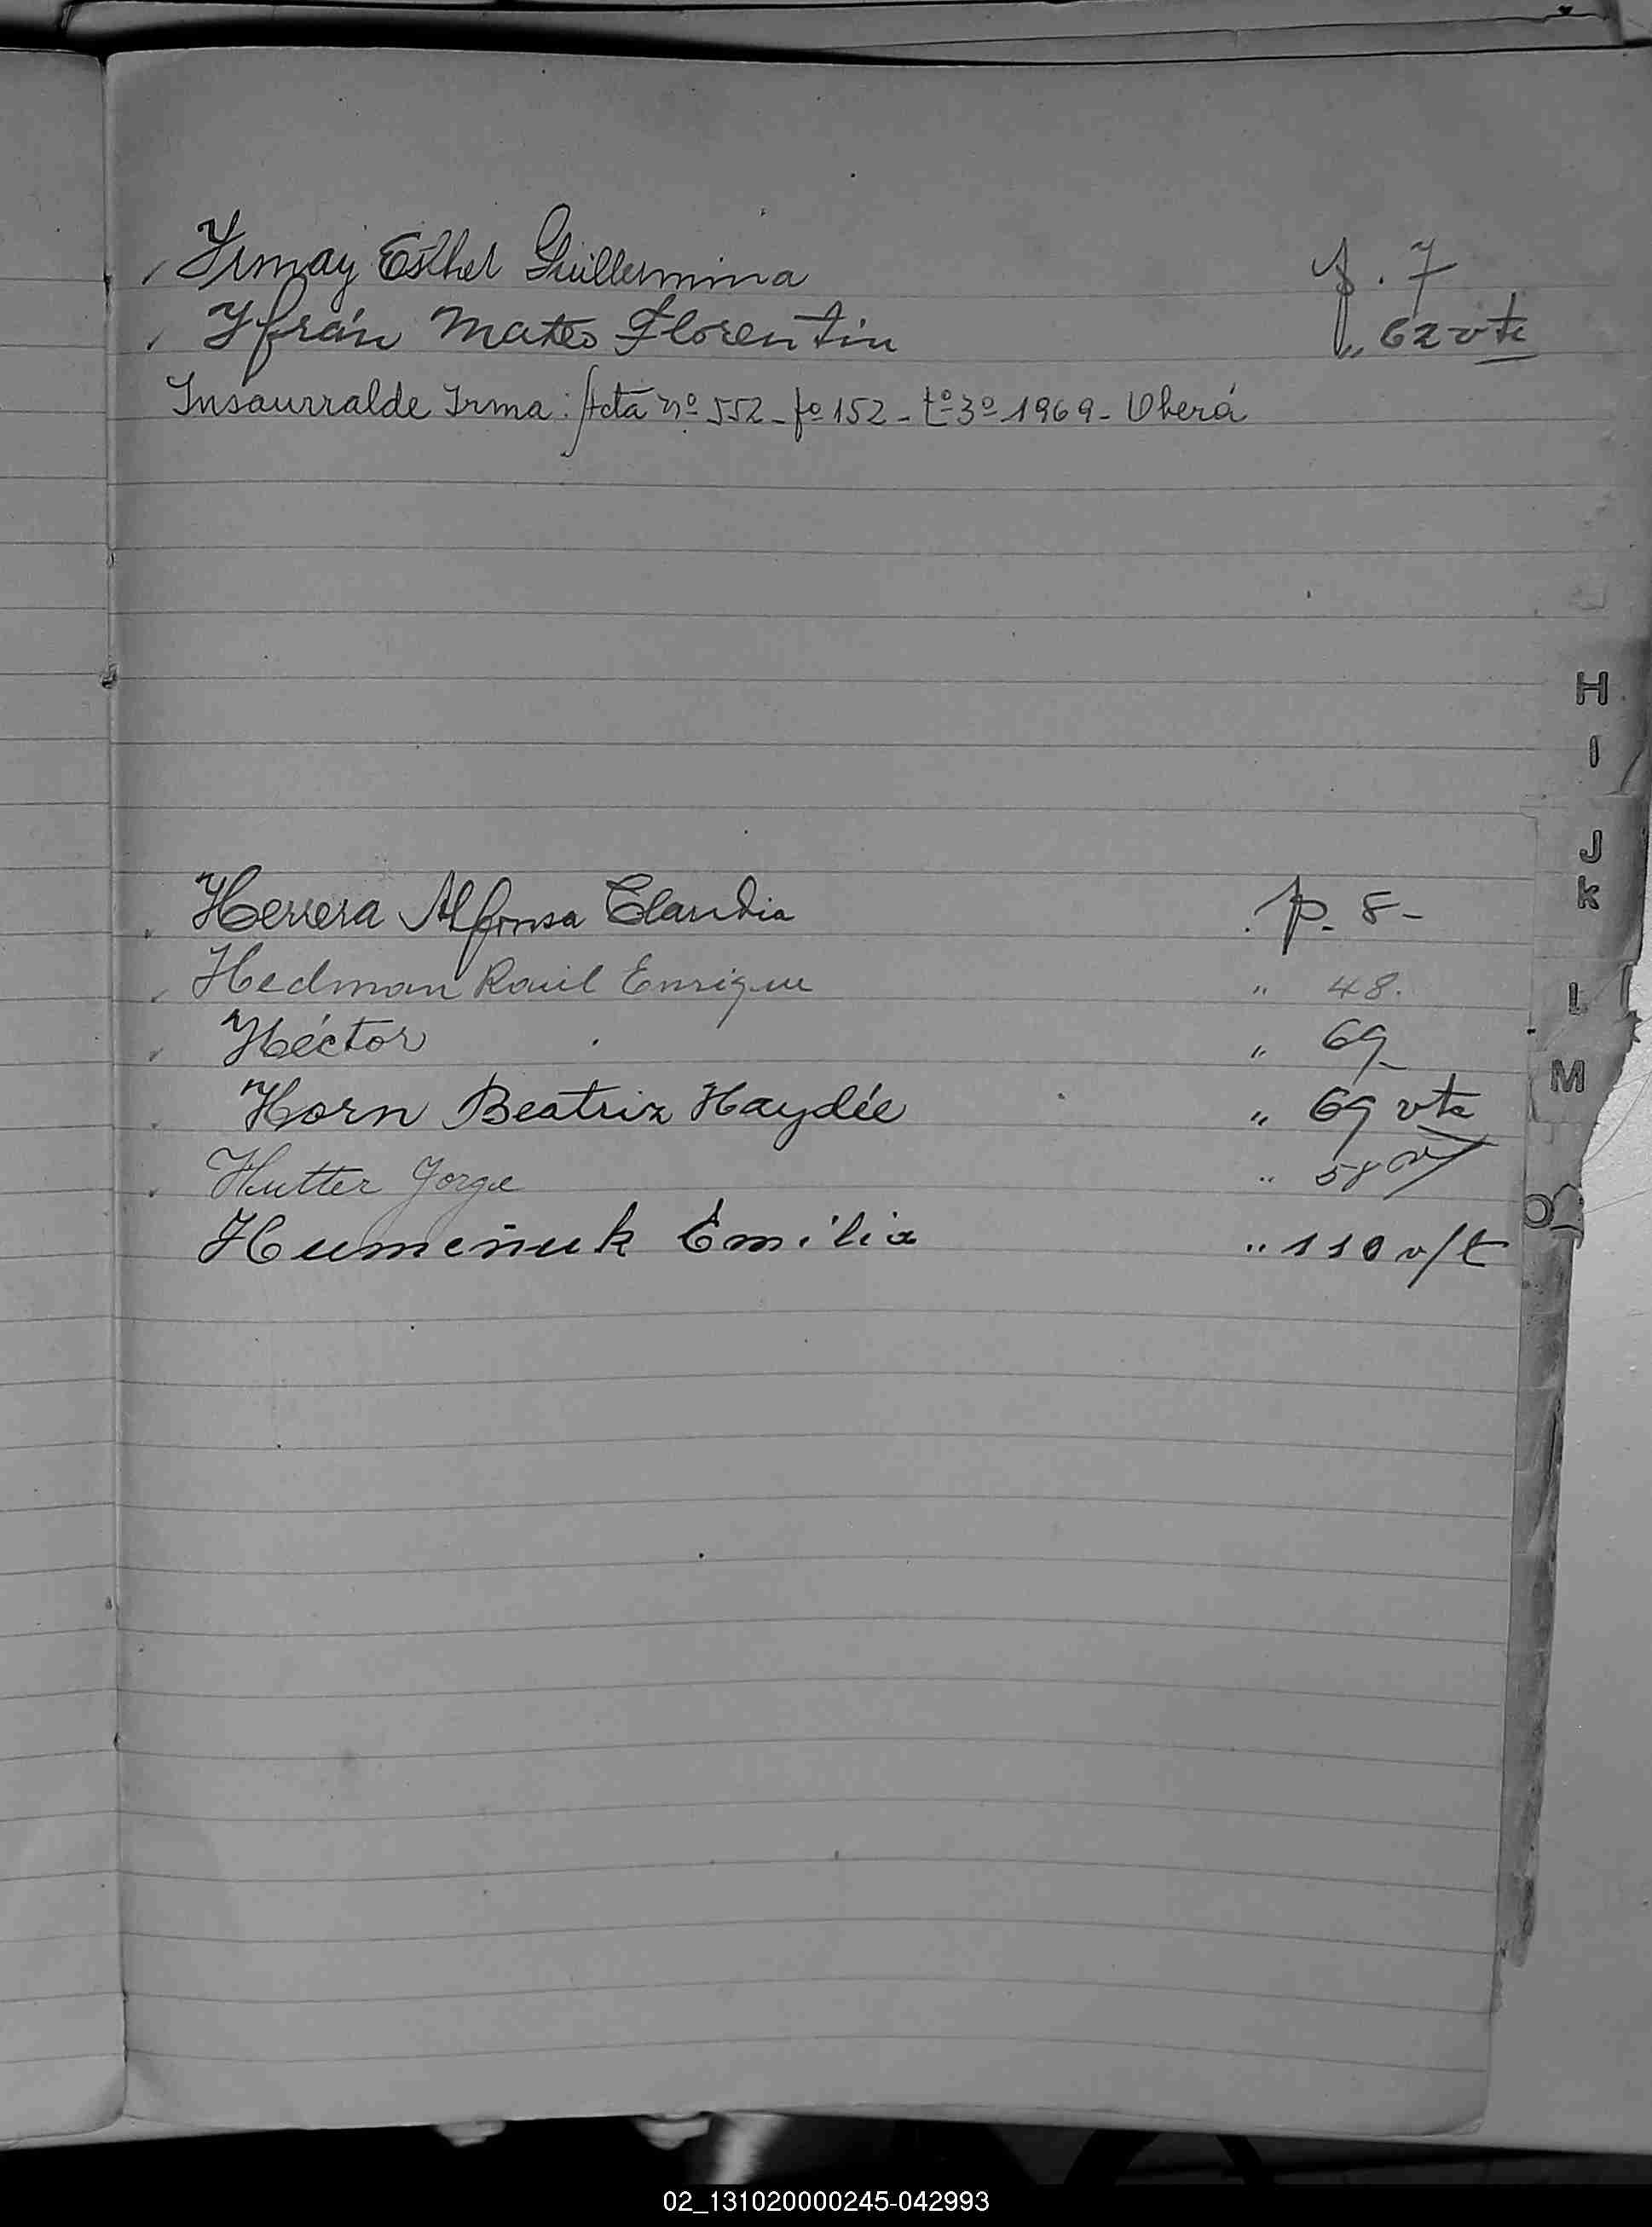 Yrmay Esther Guillermina f. 7
Yfrán Mateo Florentin „ 62 vta
Insaurralde Irma: Acta nº 552 - fº 152 - tº 3º 1969 - Oberá
H
I
J
K
Herrera Alfonsa Claudia p. 8 -
Hedman Raúl Enrique „ 48.
L
Héctor „ 69
M
Horn Beatriz Haydée „ 69 vta
Hutter Jorge „ 58 v/
O
Humeñuk Emilia „ 110 v/t
02_131020000245-042993